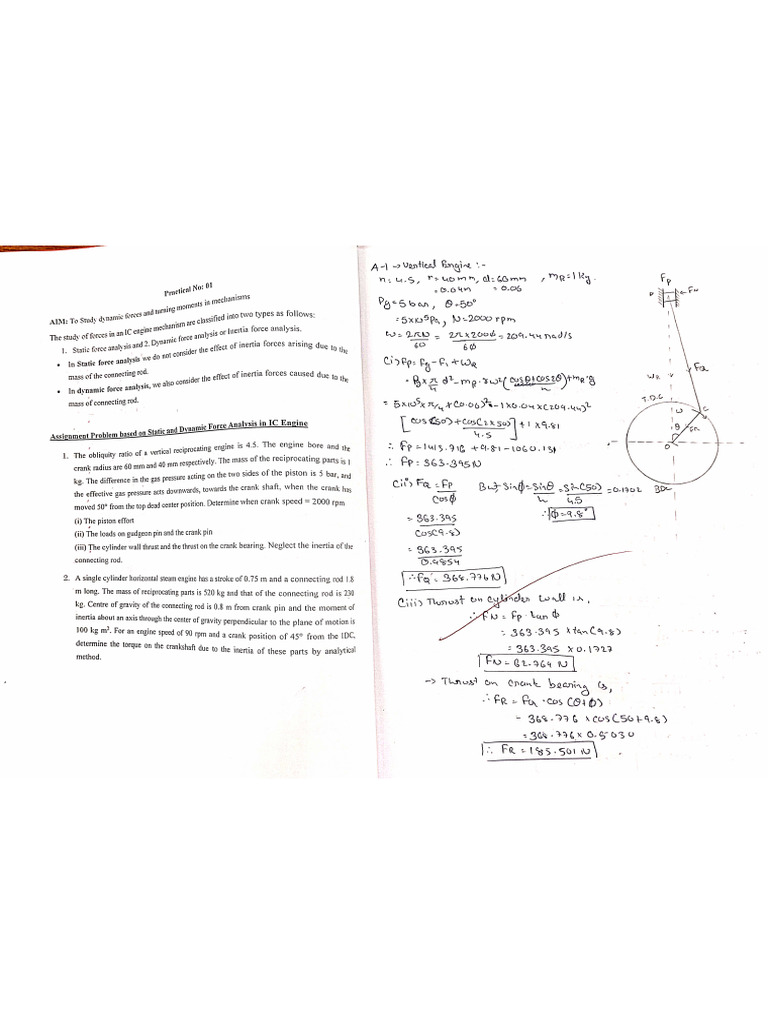 Practical No: 01
AIM: To Study dynamic forces and turning moments in mechanisms
The study of forces in an IC engine mechanism are classified into two types as follows:
1. Static force analysis and 2. Dynamic force analysis or Inertia force analysis.
• In Static force analysis we do not consider the effect of inertia forces arising due to the
mass of the connecting rod.
• In dynamic force analysis, we also consider the effect of inertia forces caused due to the
mass of connecting rod.
Assignment Problem based on Static and Dynamic Force Analysis in IC Engine
1. The obliquity ratio of a vertical reciprocating engine is 4.5. The engine bore and the
crank radius are 60 mm and 40 mm respectively. The mass of the reciprocating parts is 1
kg. The difference in the gas pressure acting on the two sides of the piston is 5 bar, and
the effective gas pressure acts downwards, towards the crank shaft, when the crank has
moved 50° from the top dead center position. Determine when crank speed = 2000 rpm
(i) The piston effort
(ii) The loads on gudgeon pin and the crank pin
(iii) The cylinder wall thrust and the thrust on the crank bearing. Neglect the inertia of the
connecting rod.
2. A single cylinder horizontal steam engine has a stroke of 0.75 m and a connecting rod 1.8
m long. The mass of reciprocating parts is 520 kg and that of the connecting rod is 230
kg. Centre of gravity of the connecting rod is 0.8 m from crank pin and the moment of
inertia about an axis through the center of gravity perpendicular to the plane of motion is
100 kg m². For an engine speed of 90 rpm and a crank position of 45° from the IDC,
determine the torque on the crankshaft due to the inertia of these parts by analytical
method.
A-1 → Vertical Engine :-
n = 4.5, r = 40 mm, d = 60 mm, mR = 1 kg.
= 0.04m = 0.06
Pg = 5 bar, θ = 50°
= 5×10⁵ Pa, N = 2000 rpm
ω = 2πN/60 = 2π×2000/60 = 209.44 rad/s
(i) Fp = Fg - Fi + WR
= Pg × π/4 d² - mR · rω² (cosθ + cos2θ/n) + mR·g
= 5×10⁵ × π/4 × (0.06)² - 1×0.04×(209.44)²
[cos(50) + cos(2×50)/4.5] + 1×9.81
∴ Fp = 1413.716 + 9.81 - 1060.131
∴ Fp = 363.395 N
(ii) FQ = Fp/cosφ But, sinφ = sinθ/n = sin(50)/4.5 = 0.1702
= 363.395/cos(9.8) ∴ φ = 9.8°
= 363.395/0.9854
∴ FQ = 368.776 N
(iii) Thrust on cylinder wall is,
∴ FN = Fp · tanφ
= 363.395 × tan(9.8)
= 363.395 × 0.1727
FN = 62.764 N
→ Thrust on crank bearing is,
∴ FR = FQ · cos(θ+φ)
= 368.776 × cos(50+9.8)
= 368.776 × 0.5030
∴ FR = 185.501 N
Fp
P
FN
FQ
WR
T.D.C
ω
C
θ
FR
O
BDC